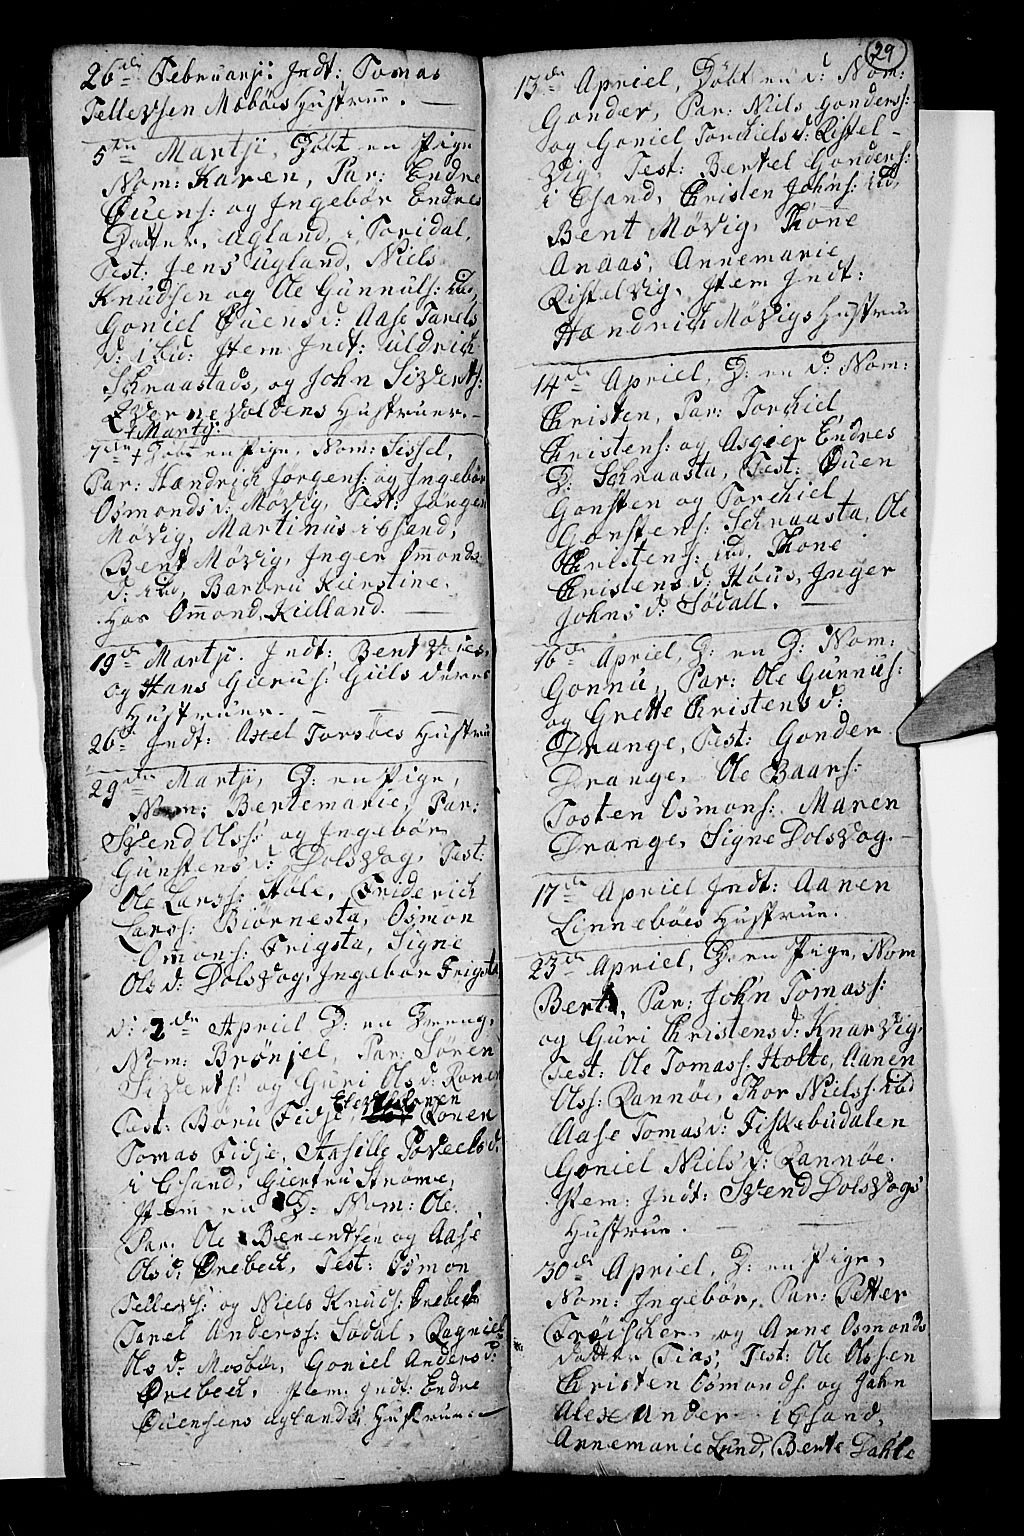 26de Februarji. Indt: Tomas
Tellevsen Moböes Hustrue.
5te Martji, Döbt en Pige
Nom: Karen, Par: Endre
Ouens: og Ingebör Endres
Datter, Ugland i Toridal,
Test: Jens Ugland, Niels
Knudsen og Ole Gunnuls: ibd,
Goniel Ouensd: Aase Tarels
d: ibid: Item Indt: Uldrich
Schraastads, og John Siverts:
Qvernevoldens Hustruer.
7de Martji Döbt en Pige, Nom: Sissel,
Par: Hændrich Jörgens: og Ingebör
Osmondsd: Mövig, Test: Jörgen
Mövig, Martinus i Chsand,
Bent Mövig, Inger Omonds
d: ibid, Barbru Kierstine
hos Omond Kielland.
19de Martji. Indt: Bent
og Hans Gierus: Giils deres
Hustruer.
26de Indt: Axel Torsöes Hustrue
29de Martji, D: en Pige,
Nom: Bertemarie, Par:
Svend Olss: og Ingebör
Gunstensd: Dolsvog, Test:
Ole Larss: Stole, Friderich
Larss: Biörnesta, Osmon
Omons: Frigsta, Signe
Olsd: Dolsvog, Ingebor Frigsta
d: 2de Apriel D: en Dreng,
Nom: Brönjel, Par: Sören
Siverts: og Guri Olsd: Ronen
Test: Böru Fidje, Ronen
Tomas Fidje, Assille Povelsd:
i Chsand, Giertru Ströme,
Item en D: Nom: Ole.
Par: Ole Berentsen og Aase
Olsd: Örebech, Test: Osmon
Tellevs: og Niels Knuds: Örebech
Tarel Anderss: Södal, Ragniel
Olsd: Mosböe, Goniel Andersd:
Örebech, Item: Indt: Endre
Ouensens Uglands Hustrue
29
13de Apriel, Döbt en d: Nom:
Gonder, Par: Niels Gonderss:
og Goniel Torchielsd: Ristel-
vig, Test: Bertel Gonders:
i Chsand, Christen Johns: ibd,
Bent Mövig, Thone
Anaas, Annemarie
Ristelvig, Item Indt:
Hændrich Mövigs Hustrue
14de Apriel, D: en D: Nom:
Christen, Par: Torchiel
Christens: og Asgier Endres
D: Schraasta, Test: Ouen
Gonsten og Torchiel
Gonstens: Schraasta, Ole
Christens: ibd, Thone
Christensd: Höus, Inger
Johnsd: Södall.
16de Apriel, D: en D: Nom:
Gonnu, Par: Ole Gunnus:
og Grette Christensd:
Drange, Test: Gonder
Drange, Ole Baars:
Tosten Osmons: Maren
Drange, Signe Dolsvog.
17de Apriel Indt: Aanen
Linneböes Hustrue.
23de Apriel, D: en Pige, Nom
Bert, Par: John Tomass:
og Guri Christensd: Knarvig
Test: Ole Tomass: Holte, Aanen
Olss: Rannöe, Thor Nielss: ibd
Aase Tomasd: Fiskebudalen
Goniel Nielsd: Rannöe.
Item: Indt: Svend Dolsvogs
Hustrue.
30de Apriel, D: en Pige,
Nom: Ingebör, Par: Petter
Fröischer og Anne Osmonds
datter Tias, Test: Ole Olssen
Christen Osmonds: og Jahn
Alexander i Chsand,
Annemarie Lund, Bente Dahle